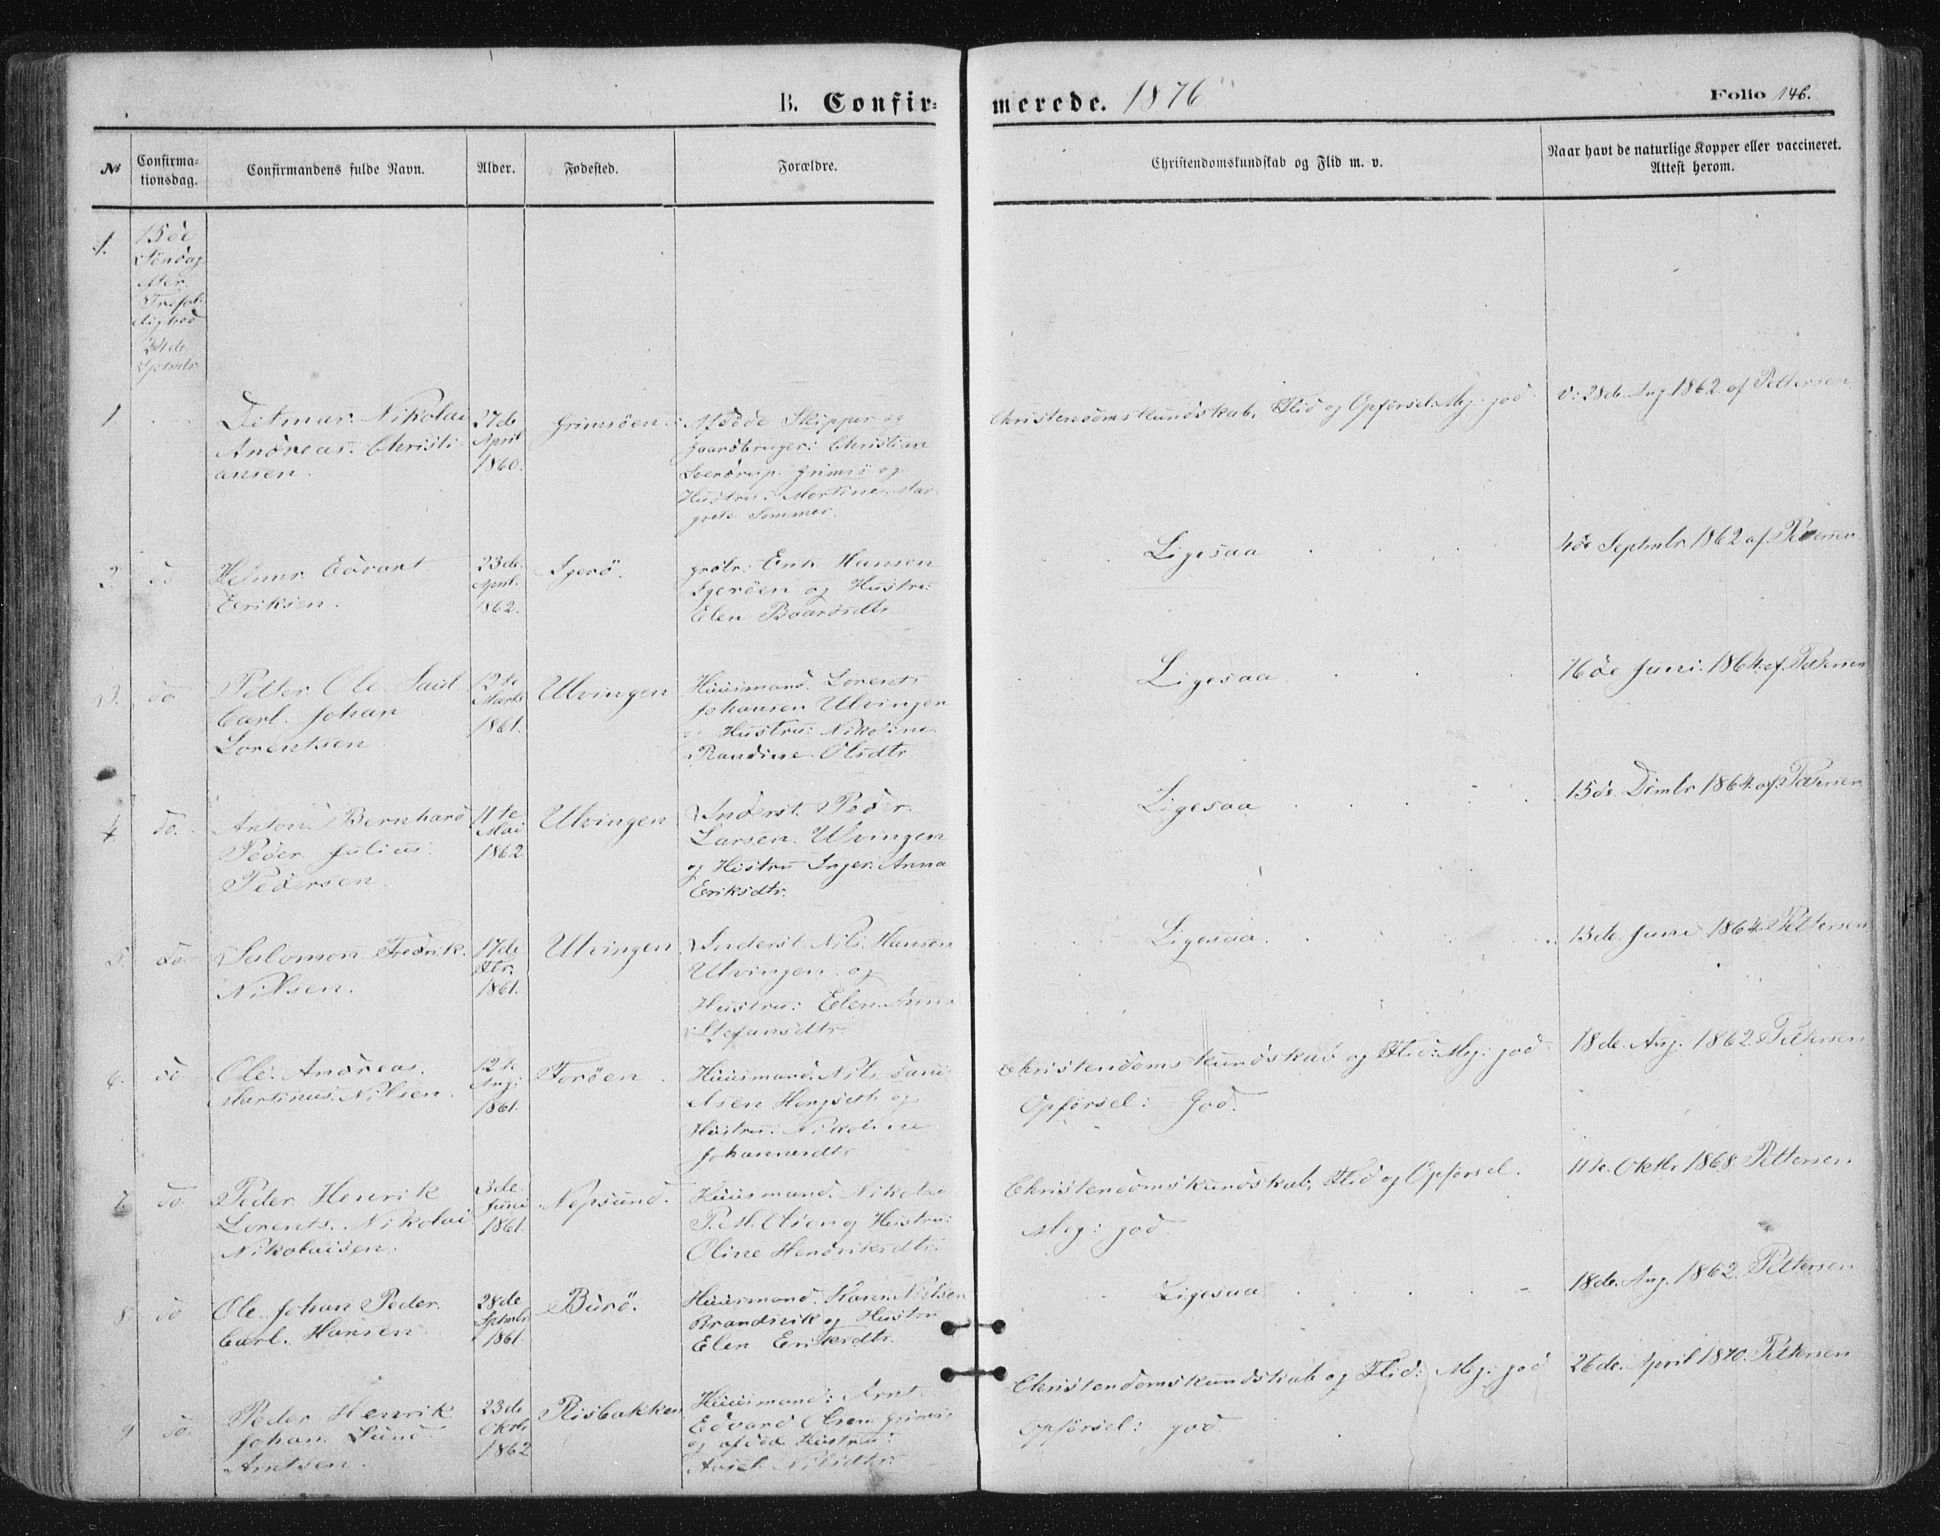 B. Confir- merede. 1876 Folio 146.
№ Confirma-
tionsdag. Confirmandens fulde Navn. Alder. Fødested. Forældre. Christendomskundskab og Flid m. v. Naar havt de naturlige Kopper eller vaccineret.
Attest herom.
1. 15de
Søndag
efter
Trefol-
dighed
24de
Septmbr
1 Ditmar Nikolai 27de Grimsöen Afdöde Skipper og Christendomskundskab, Flid og Opførsel: Meg: god v: 28de Aug 1862 af Pettersen
Andreas Christi April Gaardbruger: Christian
ansen. 1860. Grimsö og
Hustru: Martine Mar
grete Sommer.
2. do Edvart 23de Igerö. Erik Hansen Ligesaa 4de Septmbr 1862 af Petersen
Eriksen. April. Igeröen og Hustru:
1862. Elen Baardsdtr
3. do Petter Ole Saul 12te Ulvingen Huusmand. Lorents Ligesaa 16de Juni 1864 af Petersen
Carl Johan Marts Johansen Ulvingen
Lorentsen 1861. Hustru: Nikoline
Randine Olsdtr
4. do. Anton Bernhard 11te Ulvingen Inderst. Peder Ligesaa 15de Dcmbr 1864 af Petersen
Peder Julius Mai Larsen Ulvingen
Pedersen 1862 og Hustru Inger Anna
Eriksdtr.
5. do. Salomon Fredrik 17de Ulvingen Inderst Nils Hansen Ligesaa. 13de Juni 1864 Pettersen
Nilsen. 1861. Ulvingen og
Hustru: Elen Anna
Stefansdtr
6. do Ole Andreas 12te Foröen. Huusmand. Nils Dani Christendomskundskab og Flid: Meg: god 18de Aug. 1862 Pettersen
Martinus Nilsen. Aug: elsen og Opførsel: God.
1861. Hustru: Nikoline
Johannesdtr
7. do Peder Henrik 3de Nepsund. Huusmand. Nikolai Christendomskundskab, Flid og Opførsel. 11te Oktbr 1868. Pettersen
Lorents Nikolai Juni Olsen og Hustru: Meg: god
Nikolaisen. 1861. Oline Hendriksdtr.
8 do Ole Johan Peder 28de Burö. Huusmand. Hans Nielsen Ligesaa 18de Aug. 1862 Pettersen
Carl Hansen Sptmbr og Hustru
1861. Elen Eriksdtr.
9 do. Peder Henrik 23de Risbakken Huusmand: Arnt Christendomskundskab og Flid: Meg: god 26de April 1870. Pettersen
Johan Sund Oktbr Edvard Olsen Grimsö Opførsel: god.
Arntsen. 1862 og afdöd Hustru:
Nilsdtr.